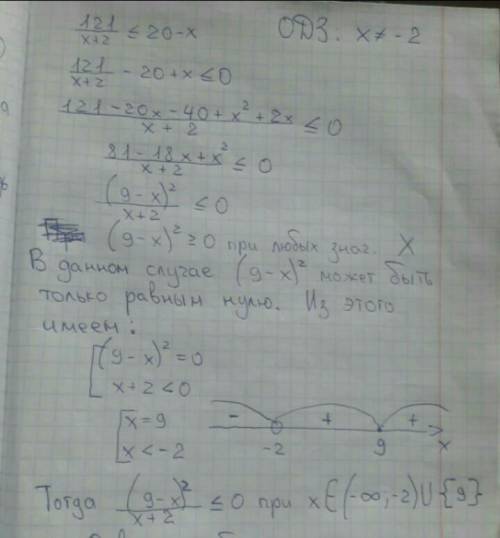 121/(x+2) ≤ 20-x ОДЗ. x ≠ -2
121/(x+2) - 20+x ≤ 0
(121-20x-40+x²+2x)/(x+2) ≤ 0
(81-18x+x²)/(x+2) ≤ 0
(9-x)²/(x+2) ≤ 0
(9-x)² ≥ 0 при любых знач. X
В данном случае (9-x)² может быть
только равным нулю. Из этого
имеем:
[(9-x)² = 0
x+2 < 0
[x = 9
x < -2
- + +
-2 9 x
Тогда (9-x)²/(x+2) ≤ 0 при x∈(-∞;-2)∪{9}